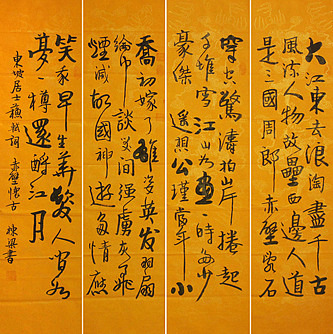 大江東去浪淘盡千古
風流人物故壘西邊人道
是三國周郎赤壁亂石
穿空驚濤拍岸捲起
千堆雪江山如畫一時多少
豪傑遙想公瑾當年小
喬初嫁了雄姿英发羽扇
綸巾談笑間強虜灰飛
煙滅故國神遊多情應
笑我早生華髮人間如
夢一樽還酹江月
東坡居士蘇軾詞 赤壁懷古 棟梁書